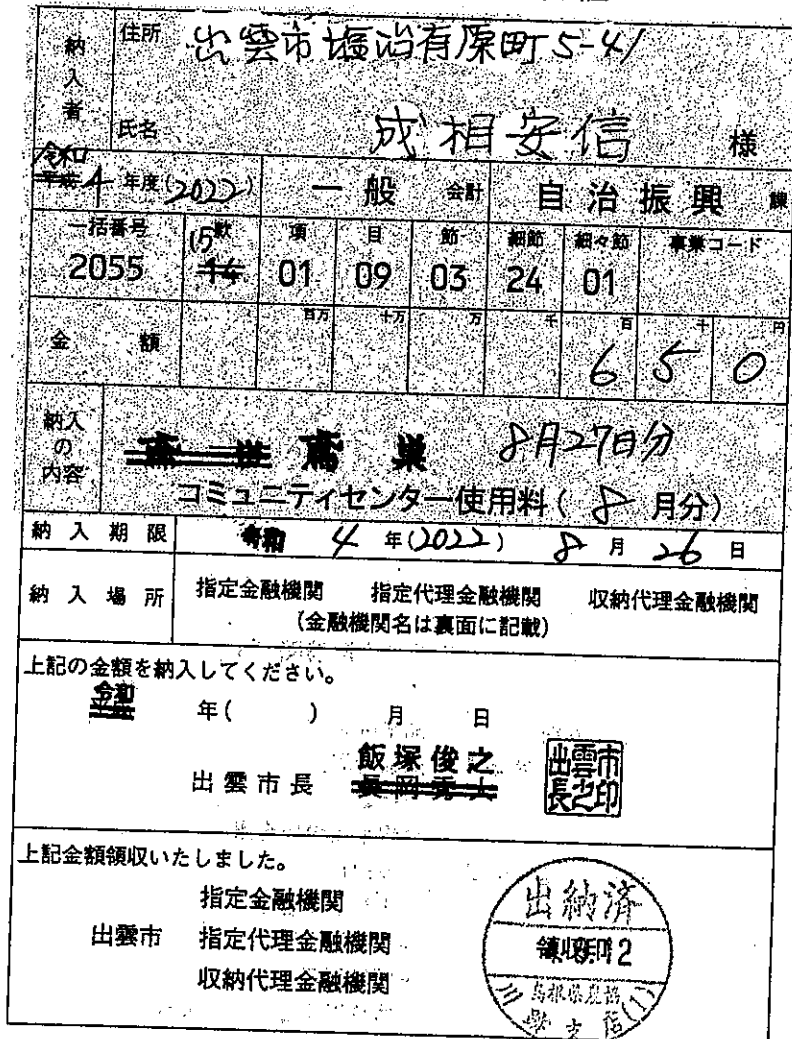 納入者
住所 出雲市塩冶有原町5-41
氏名 成相安信 様
令和
平成 4 年度(2022) 一般 会計 自治振興 課
一括番号 款 項 目 節 細節 細々節 事業コード
15
2055 14 01 09 03 24 01
百万 十万 万 千 百 十 円
金額 6 5 0
納入の内容
鳶巣 8月27日分
コミュニティセンター使用料( 8 月分)
納入期限 令和 4 年(2022) 8 月 26 日
納入場所 指定金融機関 指定代理金融機関 収納代理金融機関
(金融機関名は裏面に記載)
上記の金額を納入してください。
令和
平成 年( ) 月 日
飯塚俊之
出雲市長 長岡秀人
出雲市
長之印
上記金額領収いたしました。
指定金融機関
出雲市 指定代理金融機関
収納代理金融機関
出納済
島根県農協
支店(1)